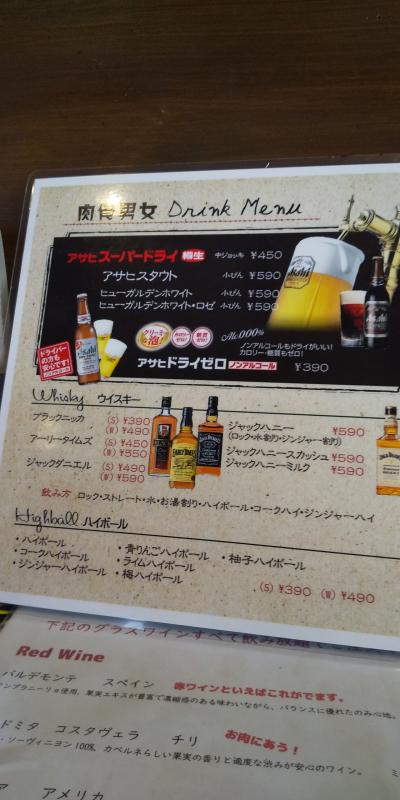 肉食男女 Drink Menu
アサヒスーパードライ 樽生 中ジョッキ ¥450
アサヒスタウト 小びん ¥590
ヒューガルデンホワイト 小びん ¥590
ヒューガルデンホワイト・ロゼ 小びん ¥590
Asahi
ドライバーの方も安心です!
クリーミーな泡 カロリーゼロ 糖質ゼロ Alc.0.00%
ノンアルコールもドライがいい!
カロリー・糖質もゼロ!
アサヒドライゼロ ノンアルコール ¥390
Whisky ウイスキー
ブラックニッカ (S) ¥390
(W) ¥490
アーリータイムズ (S) ¥450
(W) ¥550
ジャックダニエル (S) ¥490
(W) ¥590
ジャックハニー ¥590
(ロック・水割り・ジンジャー割り)
ジャックハニースカッシュ ¥590
ジャックハニーミルク ¥590
飲み方 ロック・ストレート・水・お湯割り・ハイボール・コークハイ・ジンジャーハイ
Highball ハイボール
・ハイボール
・コークハイボール
・ジンジャーハイボール
・青りんごハイボール
・ライムハイボール
・梅ハイボール
・柚子ハイボール
(S) ¥390 (W) ¥490
下記のグラスワインすべて飲み放題で
Red Wine
バルデモンテ スペイン 赤ワインといえばこれがでます。
ンプラニーリョ使用。果実エキスが豊富で濃縮感のある味わいながら、バランスに優れたのみ心地。
ドミタ コスタヴェラ チリ お肉にあう!
・ソーヴィニヨン100%、カベルネらしい果実の香りと適度な渋みが安心のワイン。
ア アメリカ